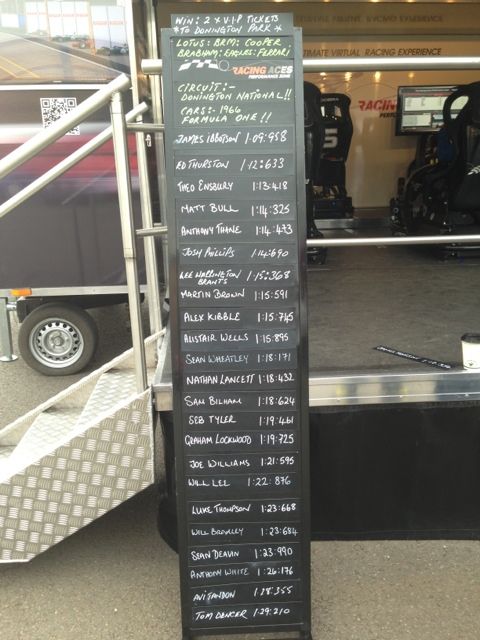 WIN: 2 x V.I.P TICKETS
*TO DONINGTON PARK*
LOTUS: BRM: COOPER
BRABHAM: EAGLES: FERRARI
RACING ACES
PERFORMANCE ZONE
CIRCUIT:-
DONINGTON NATIONAL!!
CARS:- 1960
FORMULA ONE!!
JAMES IBBOTSON 1:09:958
ED THURSTON 1:12:633
THEO ENSBURY 1:13:418
MATT BULL 1:14:325
ANTHONY THANE 1:14:473
JOSH PHILLIPS 1:14:690
LEE WARRINGTON 1:15:368
BRANTS
MARTIN BROWN 1:15:591
ALEX KIBBLE 1:15:745
ALISTAIR WELLS 1:15:895
SEAN WHEATLEY 1:18:171
NATHAN LANCETT 1:18:432
SAM BILHAM 1:18:624
SEB TYLER 1:19:461
GRAHAM LOCKWOOD 1:19:725
JOE WILLIAMS 1:21:595
WILL LEE 1:22:876
LUKE THOMPSON 1:23:668
WILL BRADLEY 1:23:684
SEAN DEAVIN 1:23:990
ANTHONY WHITE 1:26:176
AVI TANDON 1:28:355
TOM DANCER 1:29:210
ULTIMATE VIRTUAL RACING EXPERIENCE
RACING